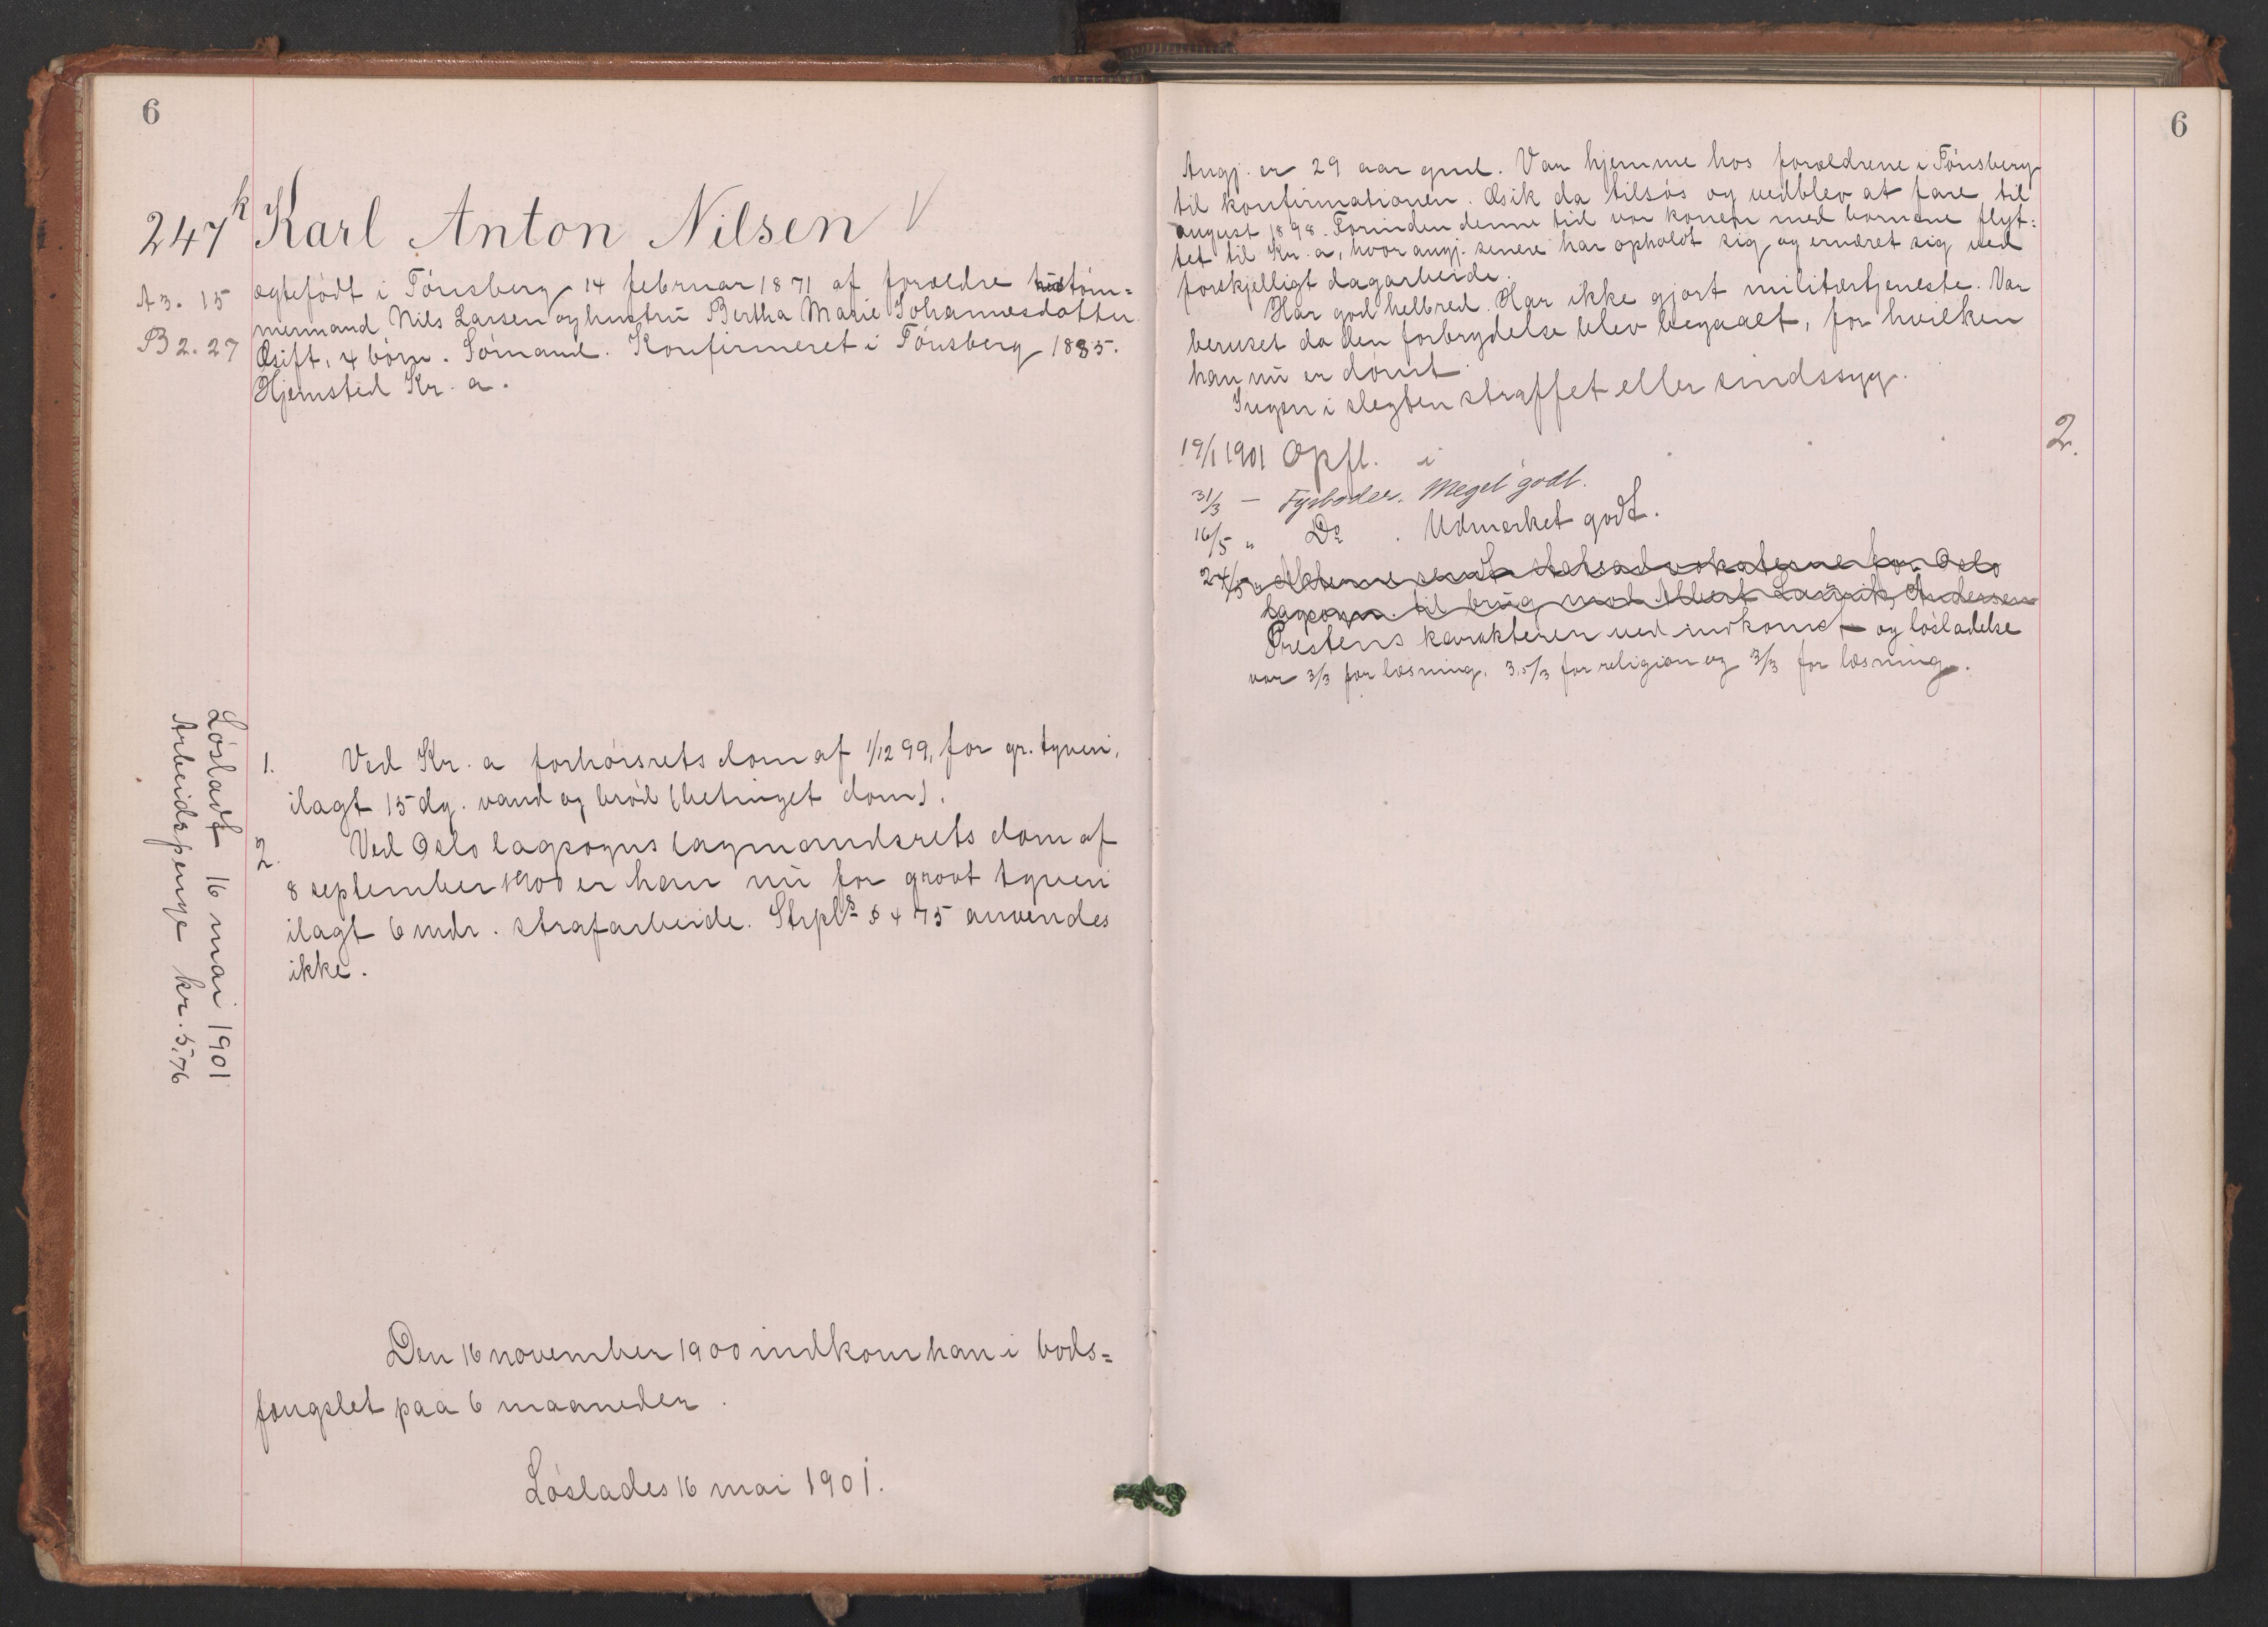 6
247k Karl Anton Nilsen V
A3. 15
B2. 27
ægtefødt i Tönsberg 14 februar 1871 af forældre tóm=
mermand Nils Larsen og hustru Bertha Marie Johannesdatter
Gift, 4 börn. Sömand. Konfirmeret i Tönsberg 1885.
Hjemsted Kr. a.
1. Ved Kr. a forhörsrets dom af 1/12 99, for gr. tyveri,
ilagt 15 dg. vand og bröd (betinget dom).
2. Ved Oslo lagsogns lagmandsrets dom af
8 september 1900 er han nu for grovt tyveri
ilagt 6 mdr. strafarbeide. Strpls § 475 anvendes
ikke.
Lösladt 16 mai 1901
Arbeidspenge kr. 5,76
Den 16 november 1900 indkom han i bods=
fængslet paa 6 maaneder.
Löslades 16 mai 1901.
6
Angj. er 29 aar gml. Var hjemme hos forældrene i Tönsberg
til konfirmationen. Gik da tilsös og vedblev at fare til
august 1898. Forinden denne tid var konen med barnene flyt=
tet til Kr. a, hvor angj. senere har opholdt sig og ernæret sig ved
forskjelligt dagarbeide.
Har god helbred. Har ikke gjort militærtjeneste. Var
beruset da den forbrydelse blev begaaet, for hvilken
han nu er dömt.
Ingen i slegten straffet eller sindssyg.
19/1 1901 Opfl. i
2.
31/3 — Fyrböder. Meget godt.
16/5 " Do . Udmerket godt.
24/5 " Akterne sendt statsadvokaterne for Oslo
lagsogn til brug mod Albert Laurits Andersen
Prestens karakterer ved indkomst og lösladelse
var 3/3 for læsning, 3,5/3 for religion og 3/3 for læsning.